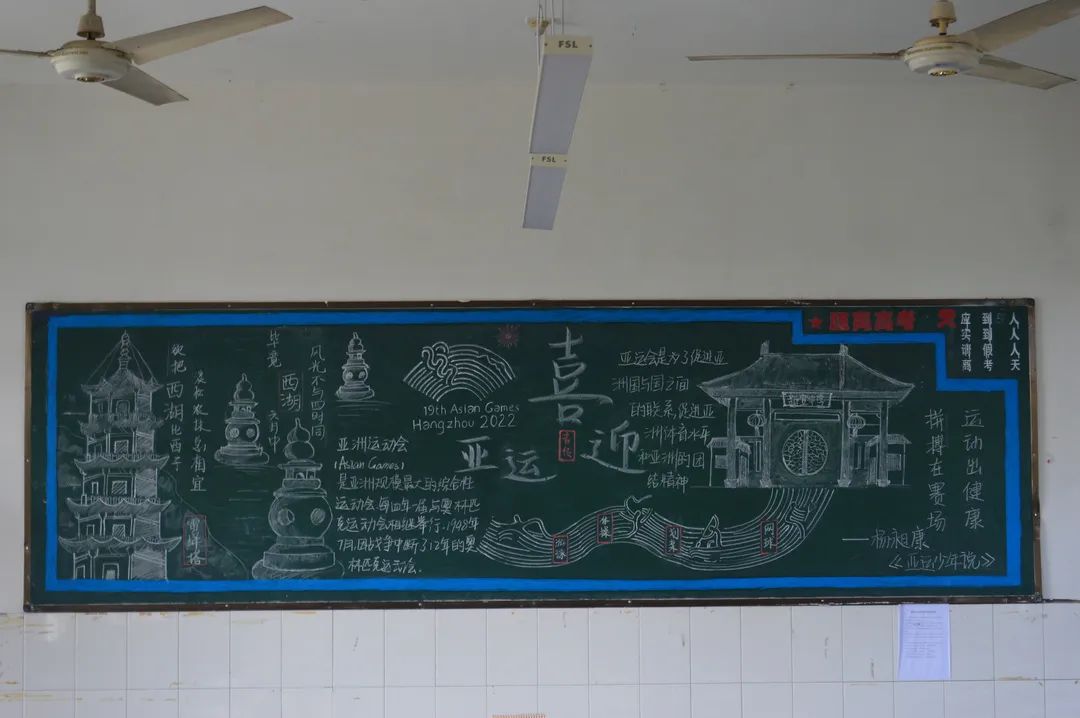 FSL
FSL
欲把
西湖比西子
淡妆浓抹总相宜
雷峰塔
毕竟
西湖
六月中
风光不与四时同
19th Asian Games
Hangzhou 2022
喜
迎
亚运
亚洲运动会
(Asian Games)
是亚洲规模最大的综合性
运动会,每四年一届与奥林匹
克运动会相继举行.1948年
7月,因战争中断了12年的奥
林匹克运动会.
亚运会是为了促进亚
洲国与国之间
的联系,促进亚
洲体育水平
和亚洲的团
结精神
体操
划船
网球
距离高考 天
人人人天
到到假考
座实讲商
运动出健康
拼搏在赛场
——杨永康
《亚运少年说》